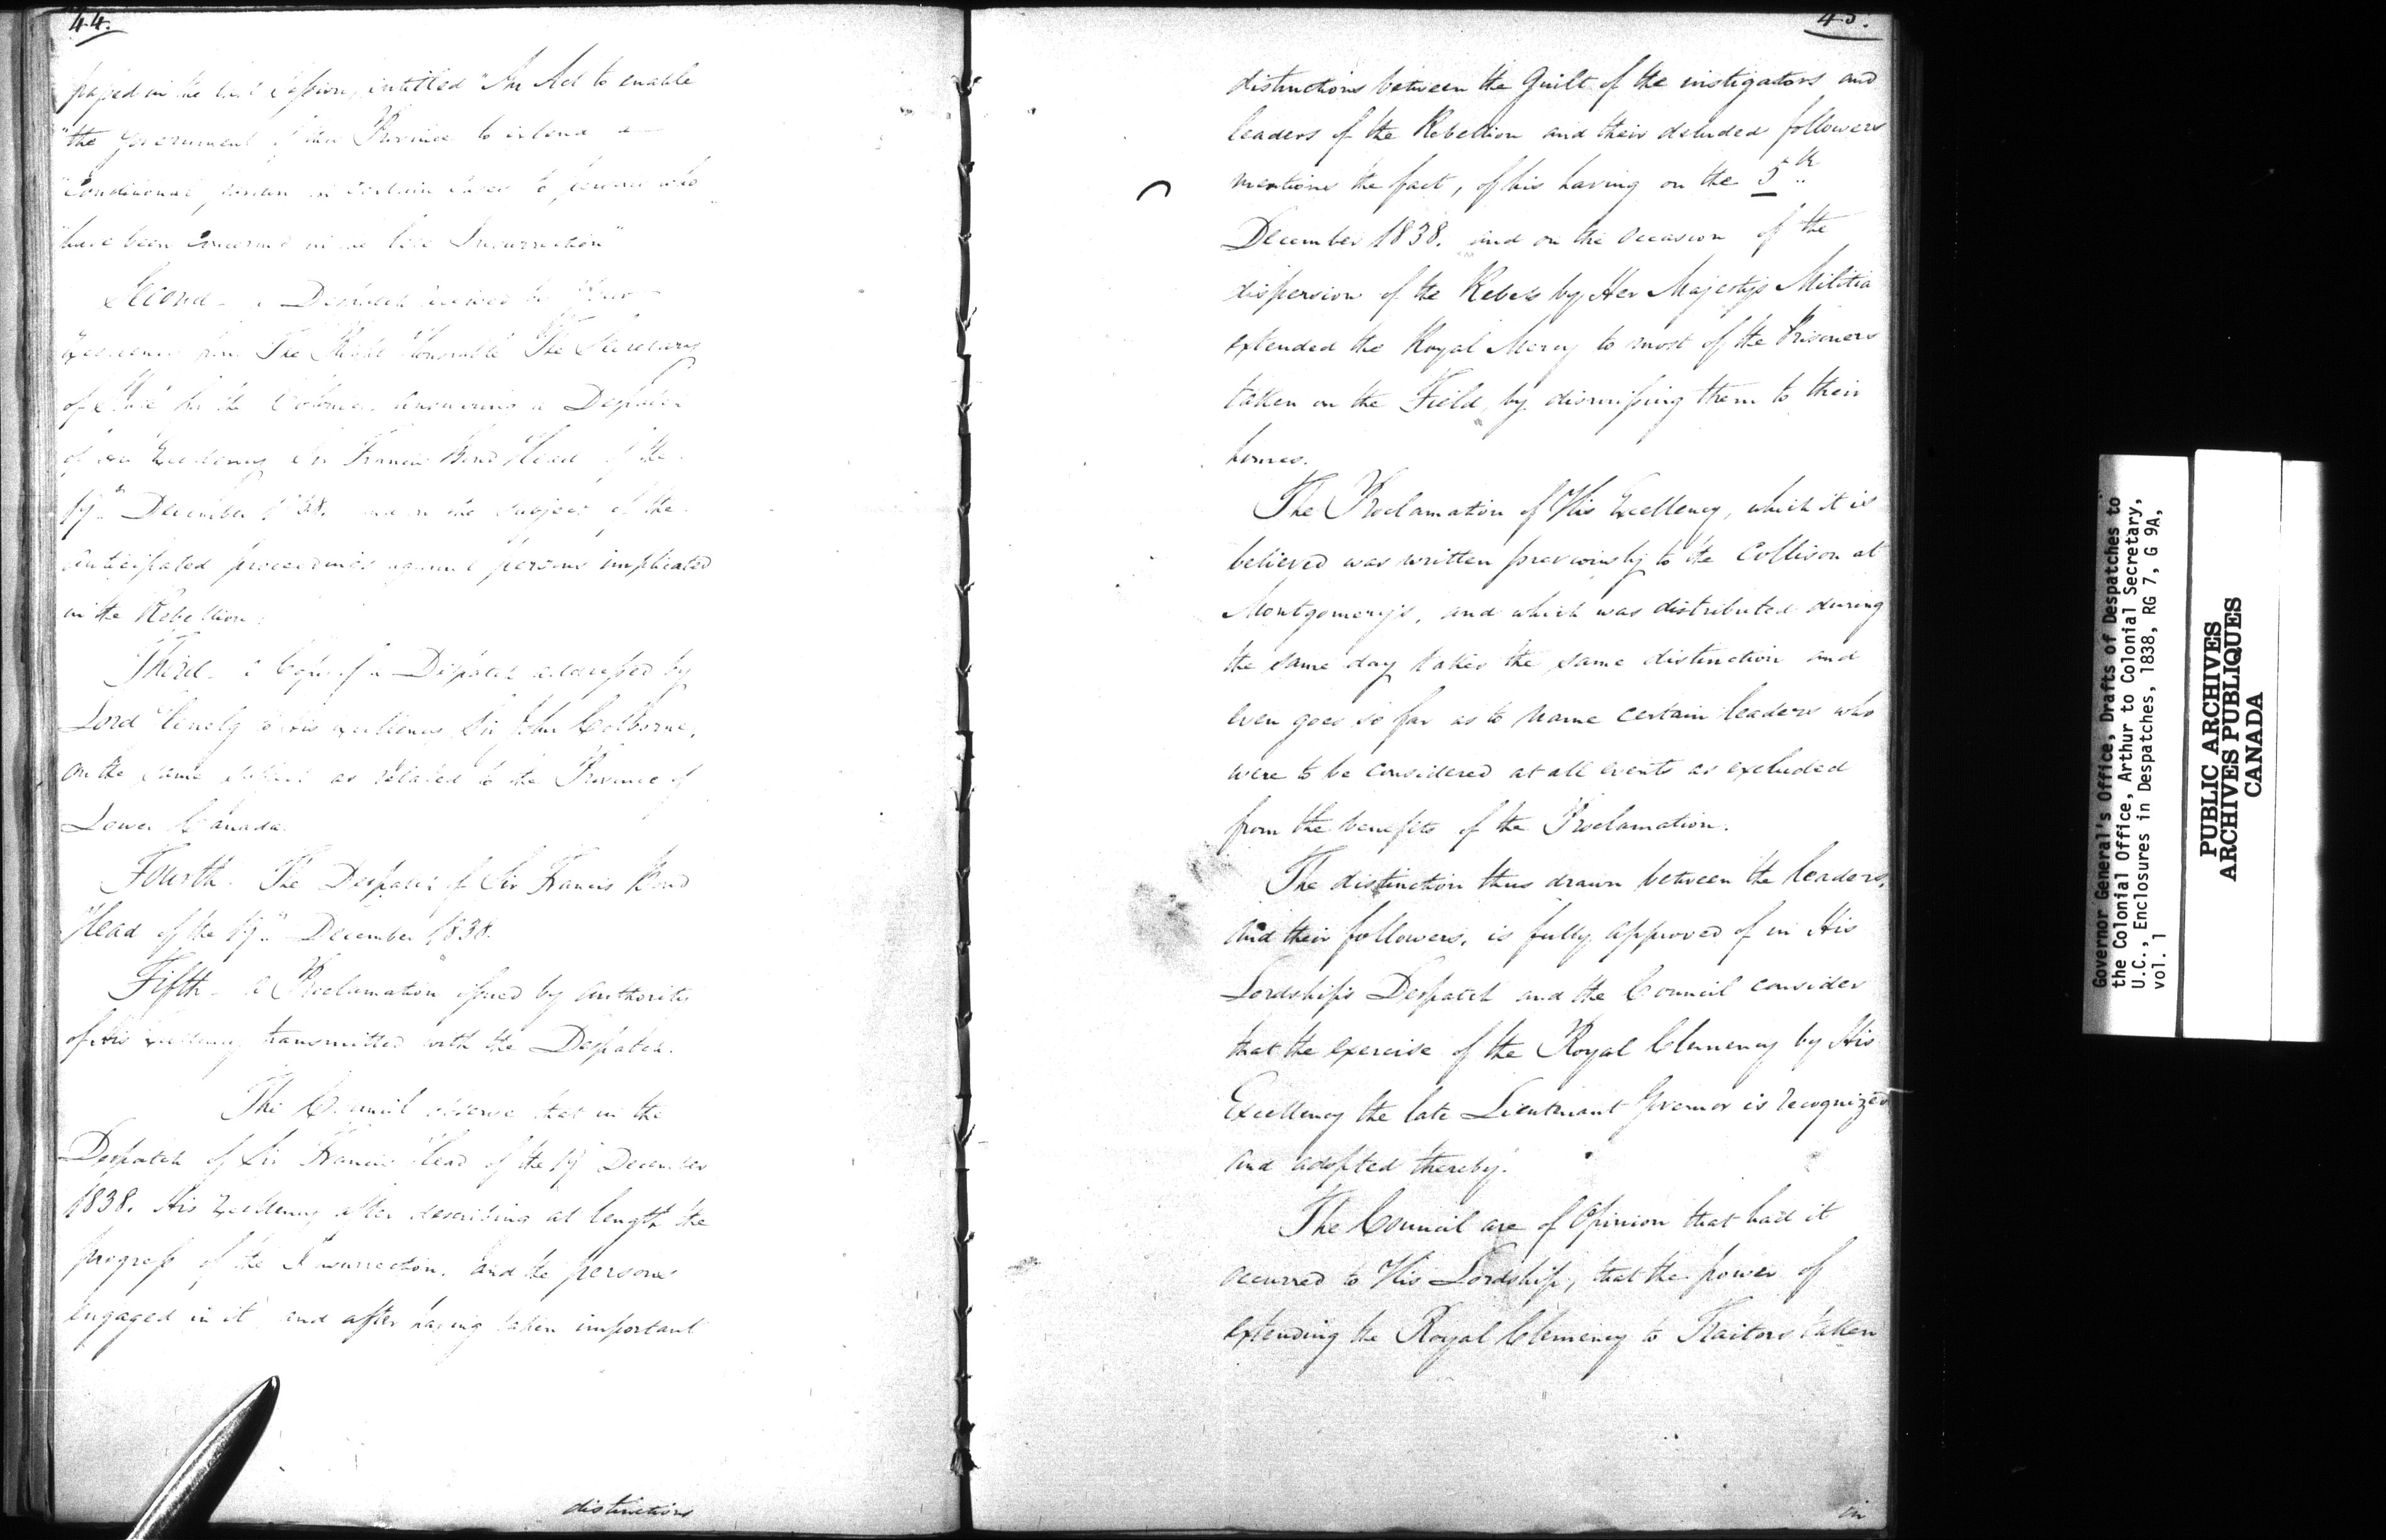 44.
passed in the last Session, intitled "An Act to enable
"the government of this Province to extend a
"Conditional pardon in certain cases to persons who
"have been concerned in the late Insurrection"
Second - a Despatch received by Your
Excellency from The Right Honorable The Secretary
of State for the Colonies, answering a Despatch
of His Excellency Sir Francis Bond Head of the
19th December 1838. and on the subject of the
anticipated proceedings against persons implicated
in the Rebellion.
Third - a Copy of a Dispatch addressed by
Lord Glenelg to His Excellency Sir John Colborne,
on the same subject as related to the Province of
Lower Canada.
Fourth. The Despatch of Sir Francis Bond
Head of the 19th December 1838.
Fifth - a Proclamation issued by authority
of His Excellency transmitted with the Despatch.
The Council observe that in the
Despatch of Sir Francis Head of the 19 December
1838. His Excellency after describing at length the
progress of the Insurrection, and the persons
engaged in it and after having taken important
distinctions
45.
distinctions between the Guilt of the instigators and
leaders of the Rebellion and their deluded followers
mentions the fact, of his having on the 5th
December 1838. and on the occasion of the
dispersion of the Rebels by Her Majesty's Militia
extended the Royal Mercy to most of the Prisoners
taken on the Field, by dismissing them to their
homes.
The Proclamation of His Excellency, which it is
believed was written previously to the Collison at
Montgomery's, and which was distributed during
the same day takes the same distinction and
even goes so far as to name certain leaders who
were to be considered at all events as excluded
from the benefits of the Proclamation.
The distinction thus drawn between the leaders,
and their followers, is fully approved of in His
Lordship's Despatch and the Council consider
that the exercise of the Royal Clemency by His
Excellency the late Lieutenant Governor is recognized
and adopted thereby.
The Council are of Opinion that had it
occurred to His Lordship, that the power of
extending the Royal Clemency to Traitors taken
in
Governor General's Office, Drafts of Despatches to
the Colonial Office, Arthur to Colonial Secretary,
U.C., Enclosures in Despatches, 1838, RG 7, G 9A,
vol. 1
PUBLIC ARCHIVES
ARCHIVES PUBLIQUES
CANADA